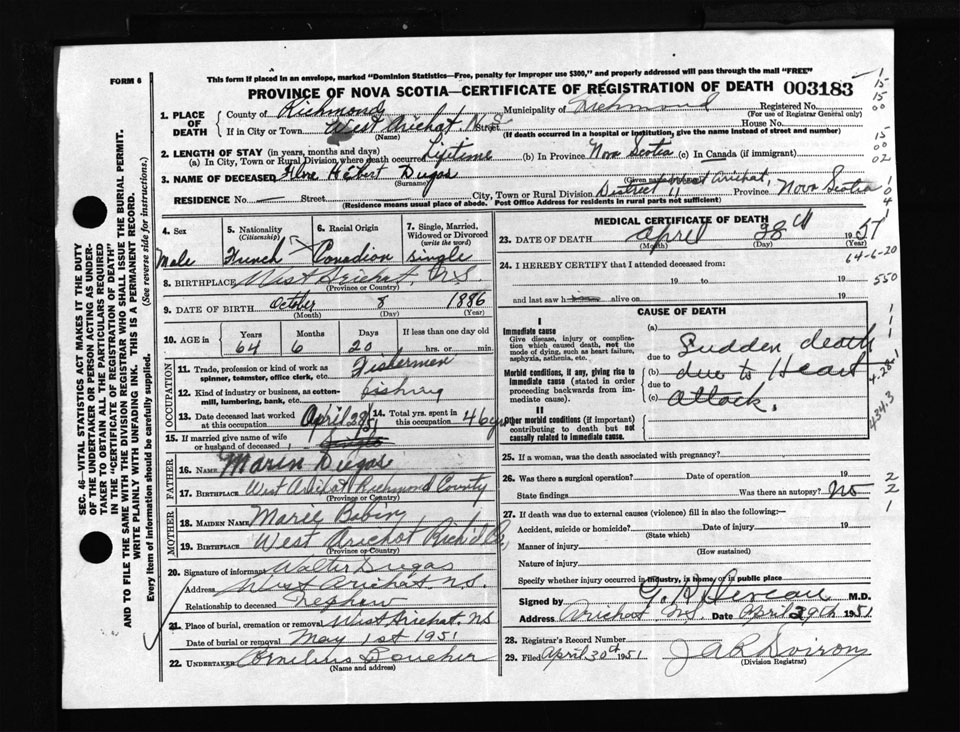 This form if placed in an envelope, marked "Dominion Statistics—Free, penalty for improper use $300," and properly addressed will pass through the mail "FREE"
FORM 6
PROVINCE OF NOVA SCOTIA—CERTIFICATE OF REGISTRATION OF DEATH 003183
1. PLACE OF DEATH
County of Richmond Municipality of Richmond Registered No.
(For use of Registrar General only)
If in City or Town West Arichat N.S. Street House No.
(Name) (If death occurred in a hospital or institution, give the name instead of street and number)
2. LENGTH OF STAY (in years, months and days)
(a) In City, Town or Rural Division where death occurred Lifetime (b) In Province Nova Scotia (c) In Canada (if immigrant)
3. NAME OF DECEASED Dugas
(Surname) (Given names)
RESIDENCE No. — Street City, Town or Rural Division District 11 West Arichat, Province Nova Scotia
(Residence means usual place of abode. Post Office Address for residents in rural parts not sufficient)
4. Sex
Male
5. Nationality
(Citizenship)
French
6. Racial Origin
Canadian
7. Single, Married, Widowed or Divorced
(write the word)
Single
8. BIRTHPLACE West Arichat, N.S.
(Province or Country)
9. DATE OF BIRTH October 8 1886
(Month) (Day) (Year)
10. AGE in
Years Months Days If less than one day old
64 6 20 hrs. or min.
OCCUPATION
11. Trade, profession or kind of work as spinner, teamster, office clerk, etc. Fishermen
12. Kind of industry or business, as cotton mill, lumbering, bank, etc. Fishing
13. Date deceased last worked at this occupation April 28/51
14. Total yrs. spent in this occupation 46 yrs
15. If married give name of wife or husband of deceased
FATHER
16. NAME Marin Dugas
17. BIRTHPLACE West Arichat Richmond County
(Province or Country)
MOTHER
18. MAIDEN NAME Marie Babin
19. BIRTHPLACE West Arichat Rich'd Co,
(Province or Country)
20. Signature of informant Walter Dugas
Address West Arichat N.S.
Relationship to deceased Nephew
21. Place of burial, cremation or removal West Arichat. NS
Date of burial or removal May 1st 1951
22. UNDERTAKER Cornelius Boucher
(Name and address)
MEDICAL CERTIFICATE OF DEATH
23. DATE OF DEATH April 28th 1951
(Month) (Day) (Year)
64-6-20
24. I HEREBY CERTIFY that I attended deceased from:
19 to 19
and last saw h alive on 19
550
CAUSE OF DEATH
I
Immediate cause
Give disease, injury or complication which caused death, not the mode of dying, such as heart failure, asphyxia, asthenia, etc.
Morbid conditions, if any, giving rise to immediate cause (stated in order proceeding backwards from immediate cause).
II
Other morbid conditions (if important) contributing to death but not causally related to immediate cause.
(a) Sudden death
due to
(b) due to Heart
due to
(c) attack.
4-28
434.3
25. If a woman, was the death associated with pregnancy?
26. Was there a surgical operation? Date of operation 19
State findings Was there an autopsy? No
27. If death was due to external causes (violence) fill in also the following:—
Accident, suicide or homicide? Date of injury 19
(State which)
Manner of injury
(How sustained)
Nature of injury
Specify whether injury occurred in industry, in home, or in public place
Signed by M.D.
Address Arichat N.S. Date April 29th 1951
28. Registrar's Record Number
29. Filed April 30th 1951
(Division Registrar)
SEC. 46—VITAL STATISTICS ACT MAKES IT THE DUTY
OF THE UNDERTAKER OR PERSON ACTING AS UNDER-
TAKER TO OBTAIN ALL THE PARTICULARS REQUIRED
IN THE "CERTIFICATE OF REGISTRATION OF DEATH"
AND TO FILE THE SAME WITH THE DIVISION REGISTRAR WHO SHALL ISSUE THE BURIAL PERMIT.
WRITE PLAINLY WITH UNFADING INK. THIS IS A PERMANENT RECORD.
Every item of information should be carefully supplied. (See reverse side for instructions.)